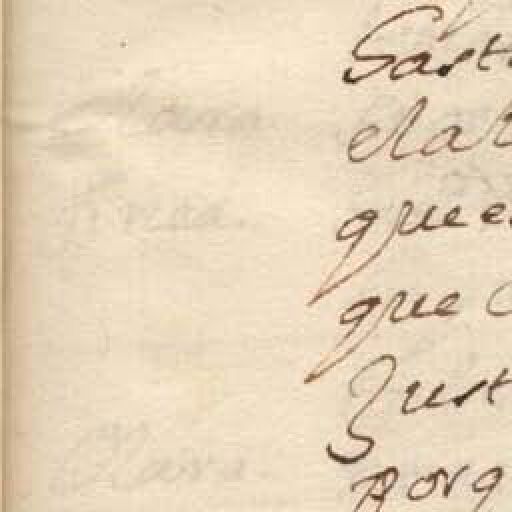 Gast
elat
que
que
Just
porq